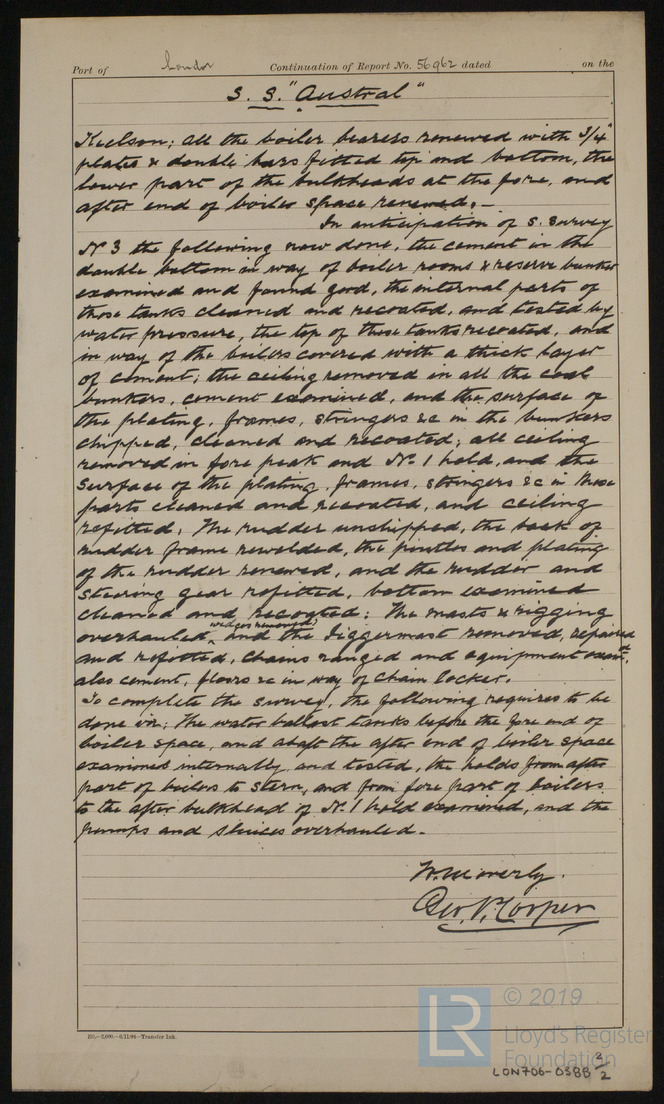 Port of London Continuation of Report No. 56962 dated on the
S. S. "Austral"
Keelson; all the boiler bearers renewed with 3/4"
plates & double bars fitted top and bottom, the
lower part of the bulkheads at the fore, and
after end of boiler space renewed. —
In anticipation of S. Survey
No 3 the following now done, the cement in the
double bottom in way of boiler rooms & reserve bunker
examined and found good, the internal parts of
those tanks cleaned and recoated, and tested by
water pressure, the top of these tanks recoated, and
in way of the boilers covered with a thick layer
of cement; the ceiling removed in all the coal
bunkers, cement examined, and the surface of
the plating, frames, stringers &c in the bunkers
chipped, cleaned and recoated; all ceiling
removed in fore peak and No. 1 hold, and the
surface of the plating, frames, stringers &c in those
parts cleaned and recoated, and ceiling
refitted, The rudder unshipped, the back of
rudder frame rewelded, the pintles and plating
of the rudder renewed, and the rudder and
steering gear refitted, bottom examined
cleaned and recoated: The masts & rigging
wedges removed,
overhauled, and the jiggermast removed, repaired
and refitted, chains ranged and equipment exam'd,
also cement, floors &c in way of chain locker.
To complete the survey, the following requires to be
done viz; The water ballast tanks before the fore end of
boiler space, and abaft the after end of boiler space
examined internally and tested, the holds from after
part of boilers to stern, and from fore part of boilers
to the after bulkhead of No. 1 hold examined, and the
pumps and sluices overhauled. -
Geo. P. Cooper
2,000.—6/11/94—Transfer Ink.
LR
© 2019
Lloyd's Register
Foundation
LON706-0388 3/2